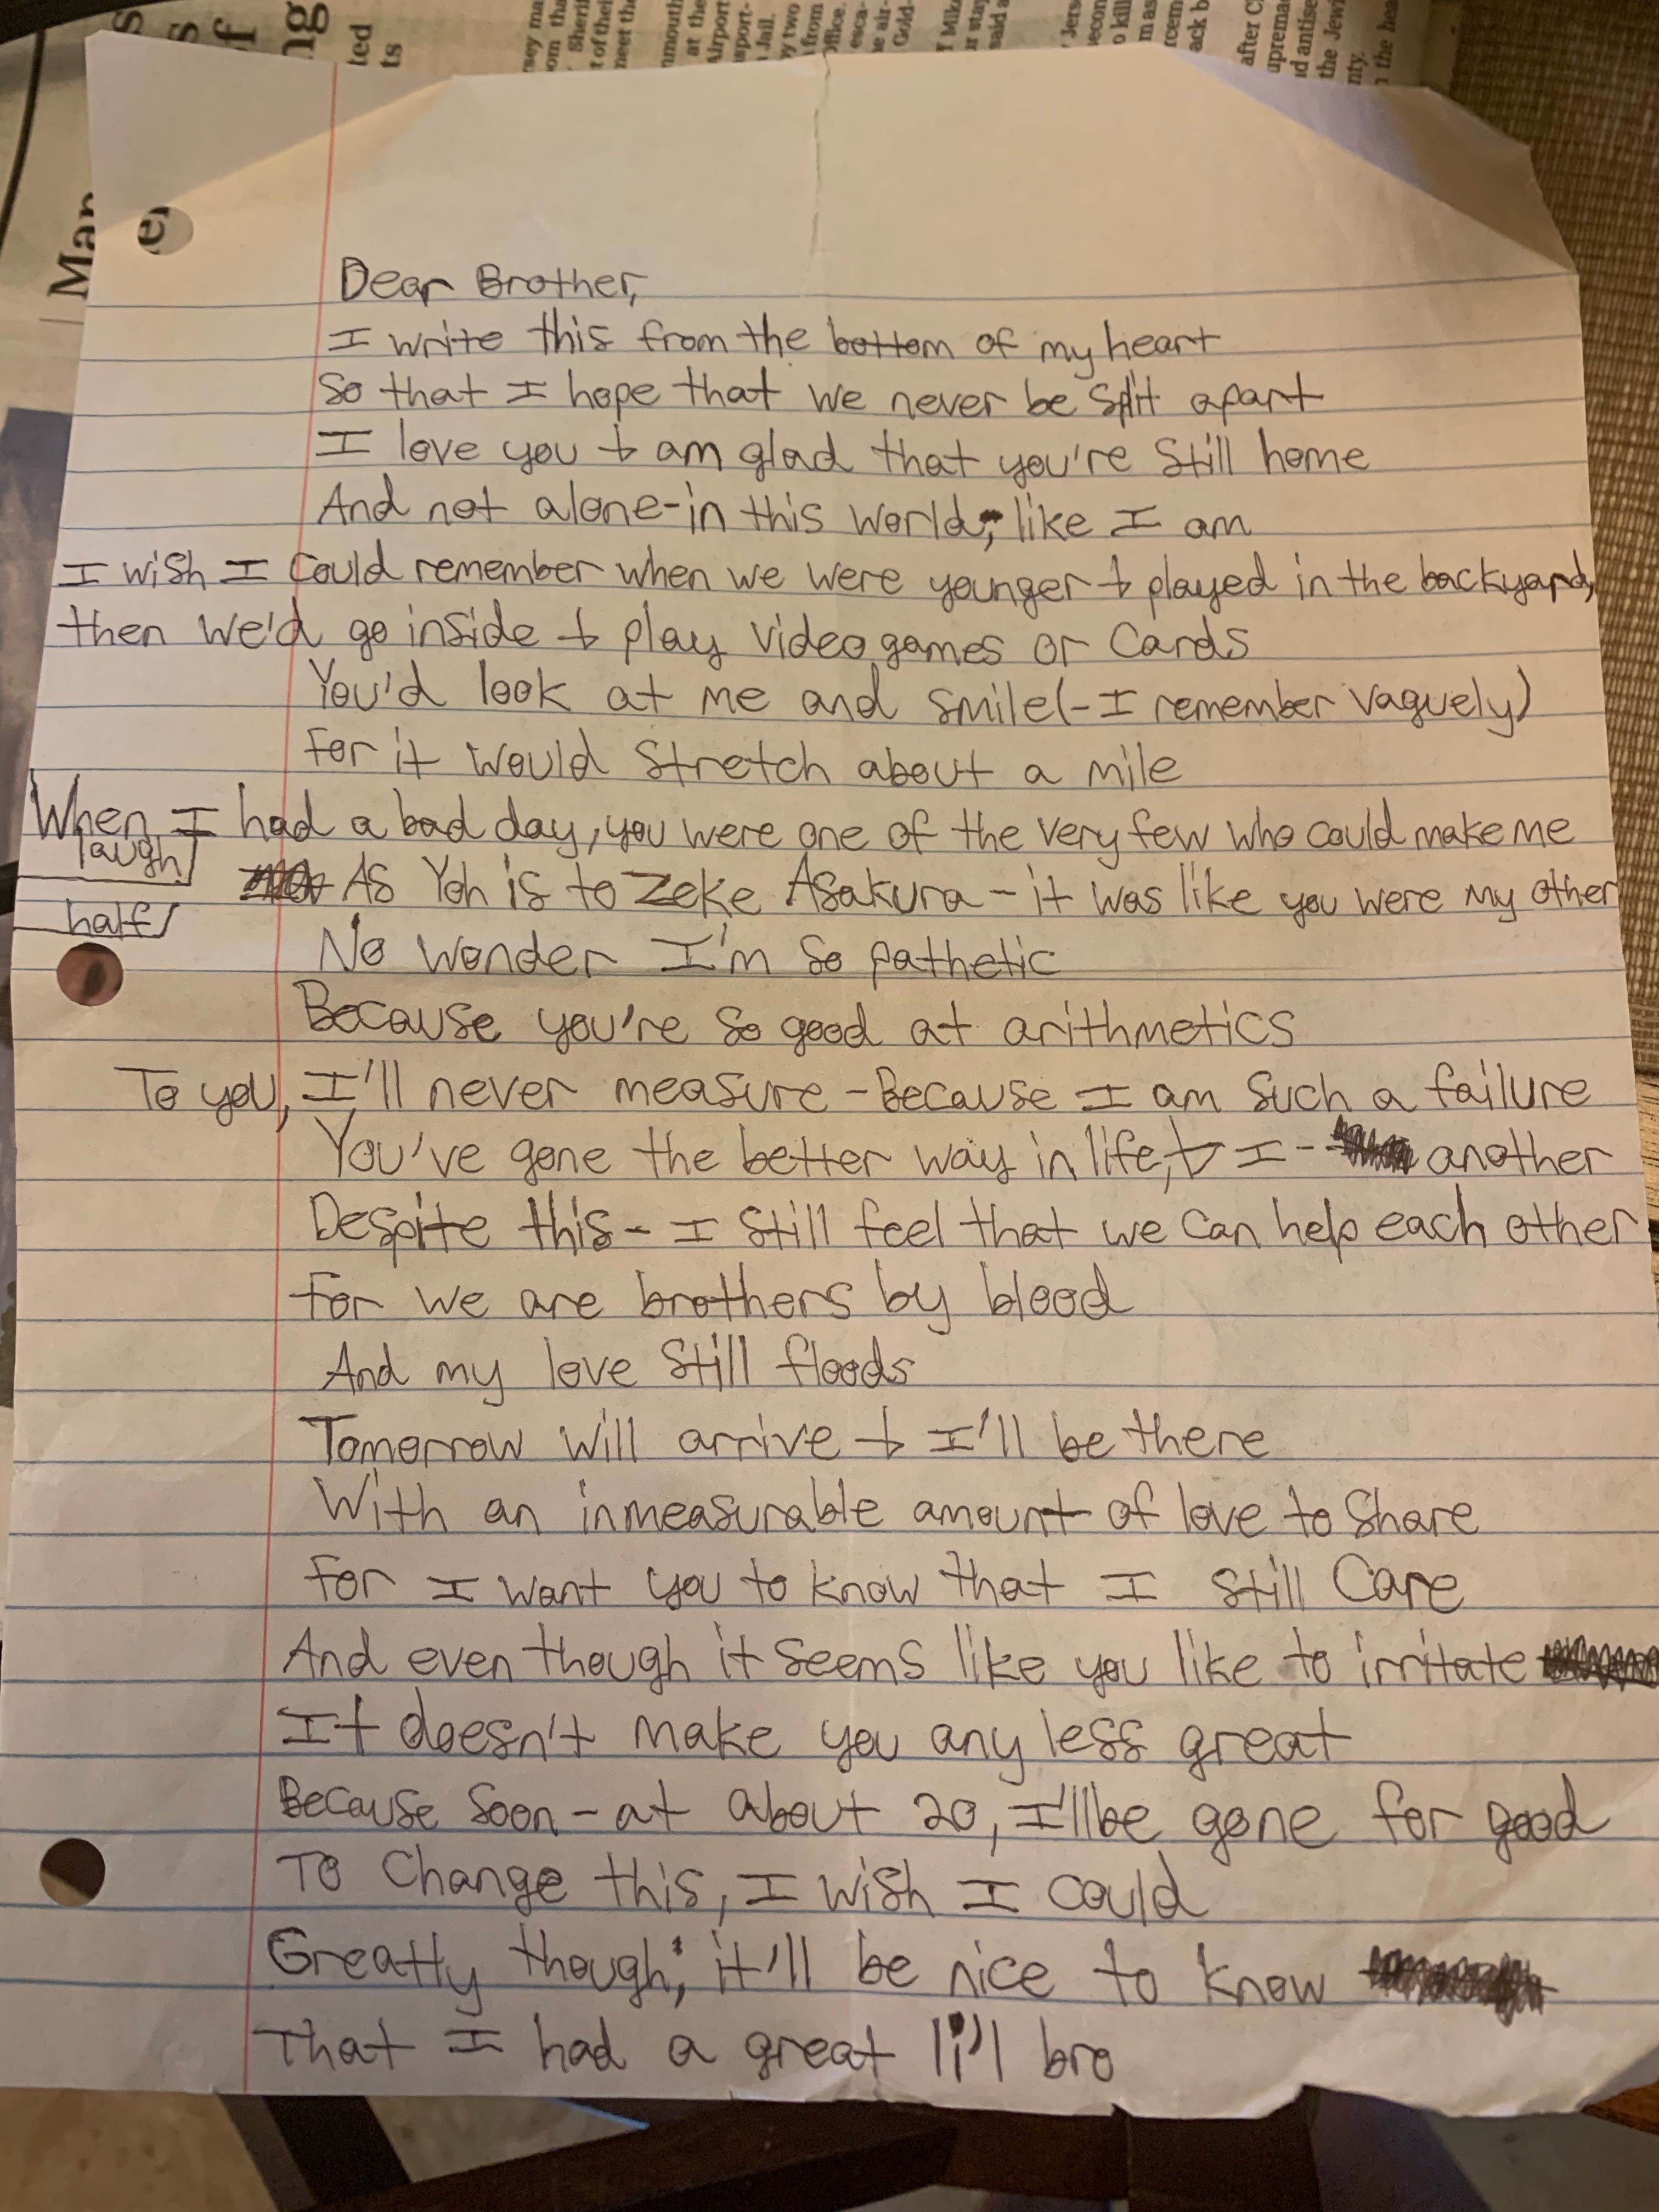 Dear Brother,
I write this from the bottom of my heart
So that I hope that we never be split apart
I love you + am glad that you're still home
And not alone-in this world, like I am
I wish I could remember when we were younger + played in the backyard,
then we'd go inside + play video games or cards
You'd look at me and smile(-I remember vaguely)
For it would stretch about a mile
When I had a bad day, you were one of the very few who could make me
laugh
As Yoh is to Zeke Asakura - it was like you were my other
half
No wonder I'm so pathetic
Because you're so good at arithmetics
To you, I'll never measure - Because I am such a failure
You've gone the better way in life, + I - another
Despite this - I still feel that we can help each other
For we are brothers by blood
And my love still floods
Tomorrow will arrive + I'll be there
With an inmeasurable amount of love to share
For I want you to know that I still care
And even though it seems like you like to irritate
It doesn't make you any less great
Because soon - at about 20, I'll be gone for good
To change this, I wish I could
Greatly though; it'll be nice to know
That I had a great li'l bro
ng
ted
ts
Map
sey ma
om tha
Sherif
t of thei
meet the
nmouth
at the
Airport
sport-
Jail.
by two
from
Office.
esca-
e air-
Gold-
f Mike
ur stay
said a
Jerse
secon
o kill
mas
rcem
ack b
after C
uprema
d antise
the Jewi
nty.
the hea